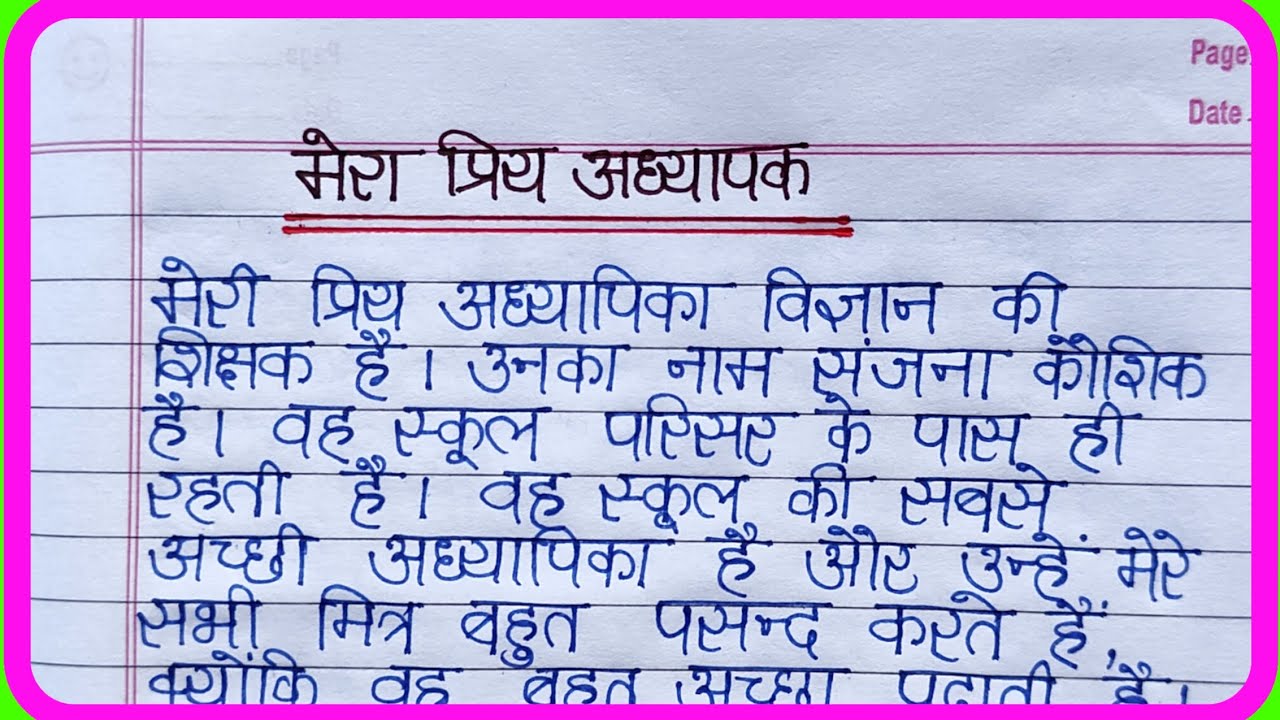 Page
Date
मेरा प्रिय अध्यापक
मेरी प्रिय अध्यापिका विज्ञान की
शिक्षक है। उनका नाम संजना कौशिक
है। वह स्कूल परिसर के पास ही
रहती है। वह स्कूल की सबसे
अच्छी अध्यापिका है और उन्हें मेरे
सभी मित्र बहुत पसन्द करते हैं,
क्योंकि वह बहुत अच्छा पढ़ाती है।